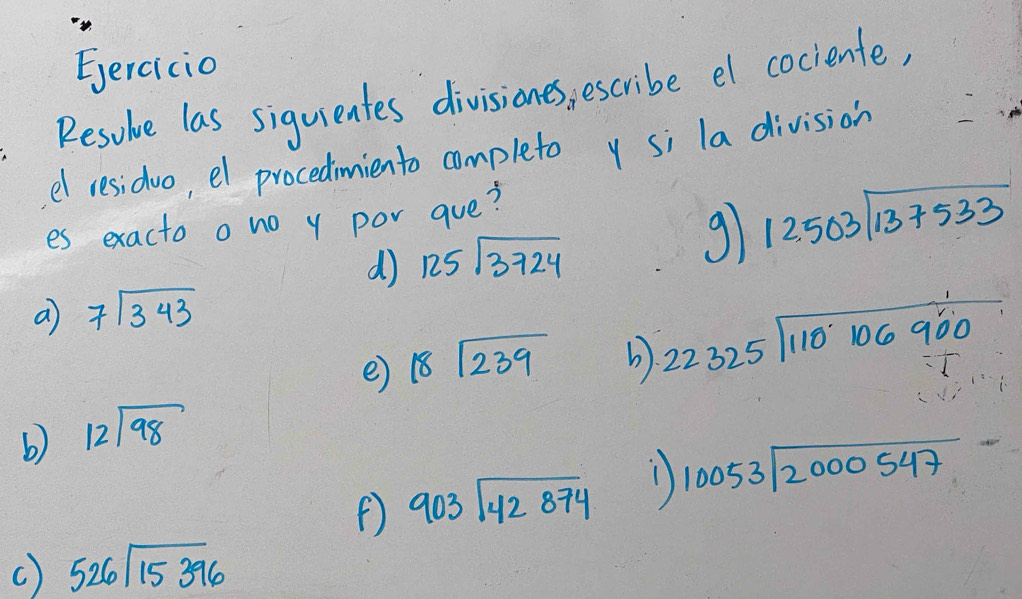 Ejercicio
Resulve las siguientes divisiones, escribe el cociente,
el residuo, el procedimiento completo y si la división
es exacto o no y por que?
a) 7 343
b) 12 98
c) 526 15 396
d) 125 3724
e) 18 239
f) 903 42 874
g) 12503 137533
h) 22325 110 106 900
i) 10053 2000 547